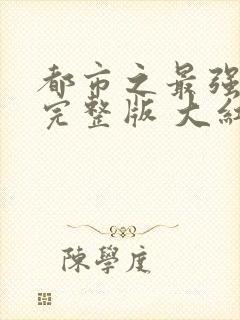 都市之最强
完整版 大红
陳學庢